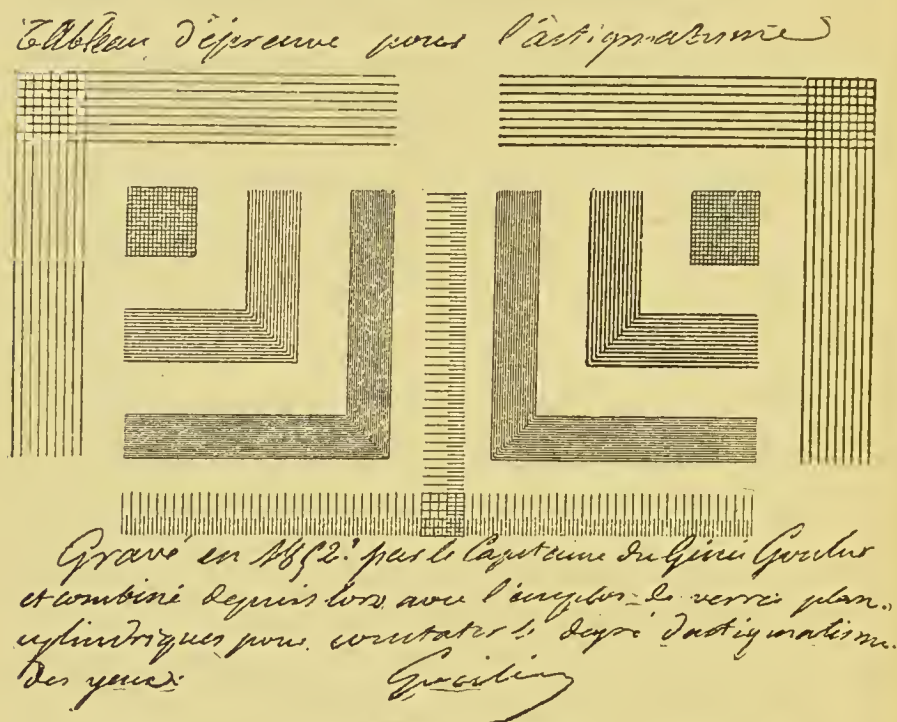 Tableau d'épreuve pour l'astigmatisme
Gravé en 1852. par le Capitaine du Génie Goulier
et combiné depuis lors avec l'emploi de verres plan-
cylindriques pour constater le degré d'astigmatisme
des yeux.